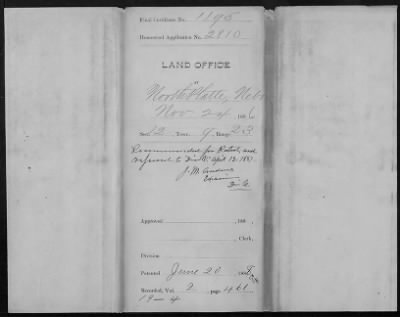 Final Certificate No. 1195
Homestead Application No. 2810
LAND OFFICE
AT
North Platte, Nebr
Nov 24, 1886
Sect. 12, Town. 9, Range 23
Recommended for Patent, and
referred to Div. "C" April 12, 188
J. M.
Approved , 188 .
, Clerk,
Division
Patented June 20, 188
Recorded, Vol. 2, page 461